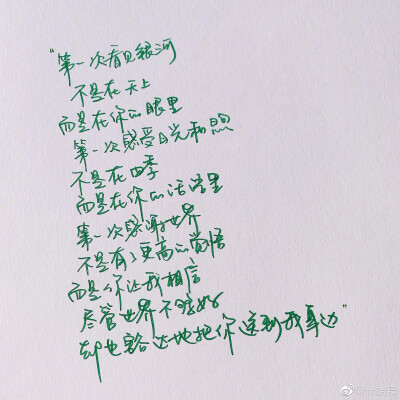 “第一次看见银河
不是在天上
而是在你的眼里
第一次感受日光和煦
不是在四季
而是在你的话语里
第一次感谢世界
不是有了更高的觉悟
而是你让我相信
尽管世界不够好
却也豁达地把你送到我身边”